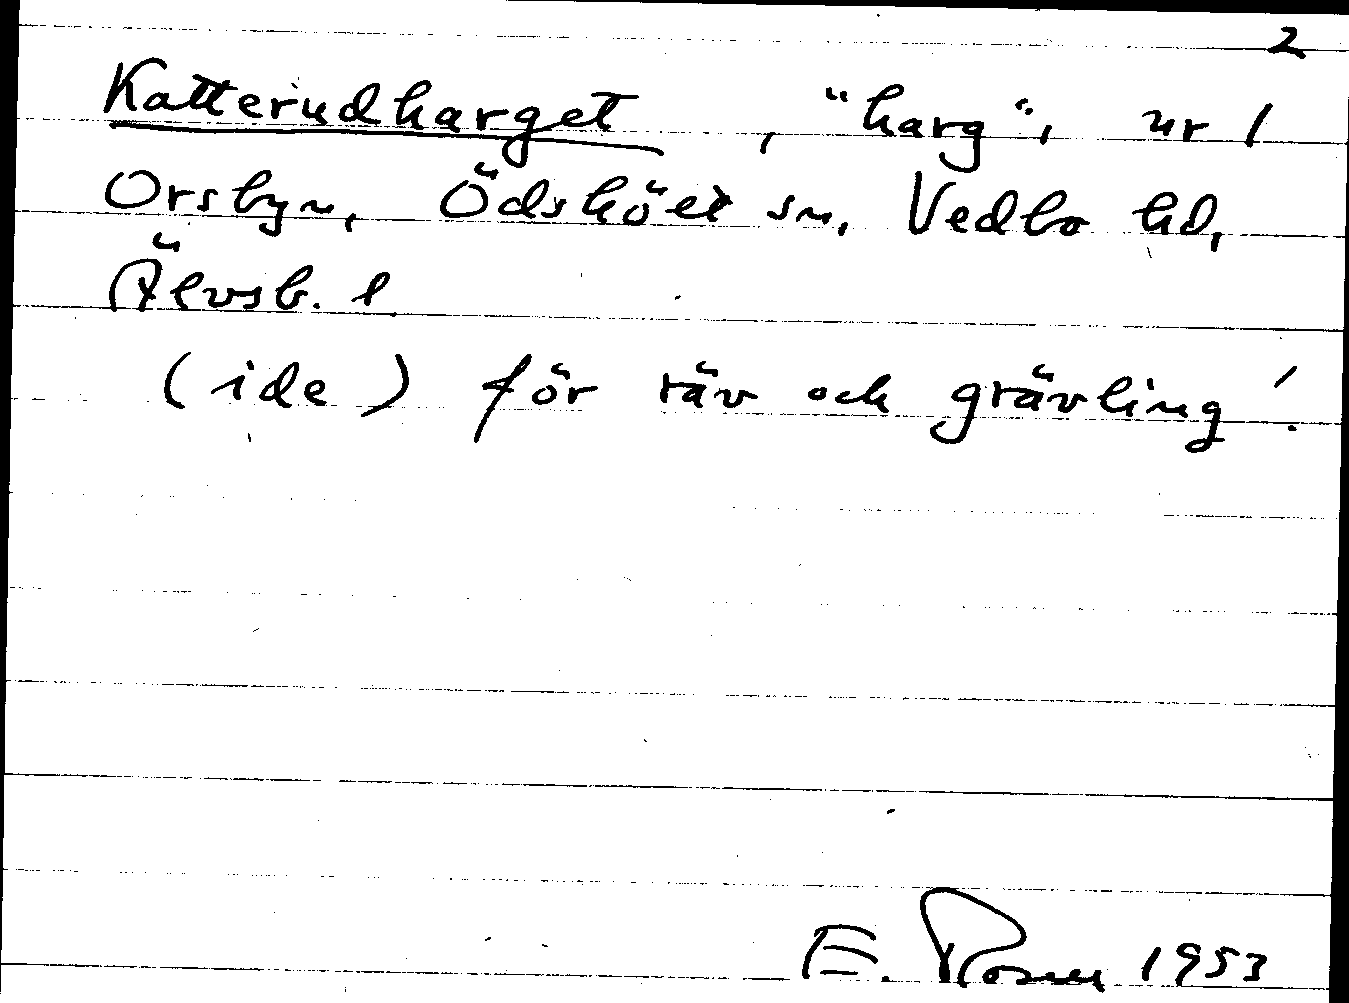 2
Katterudharget, "harg", nr 1
Orsbyn, Ödsköet sn, Vedbo hd,
Älvsb. l
(ide) för räv och grävling!
E. 1953